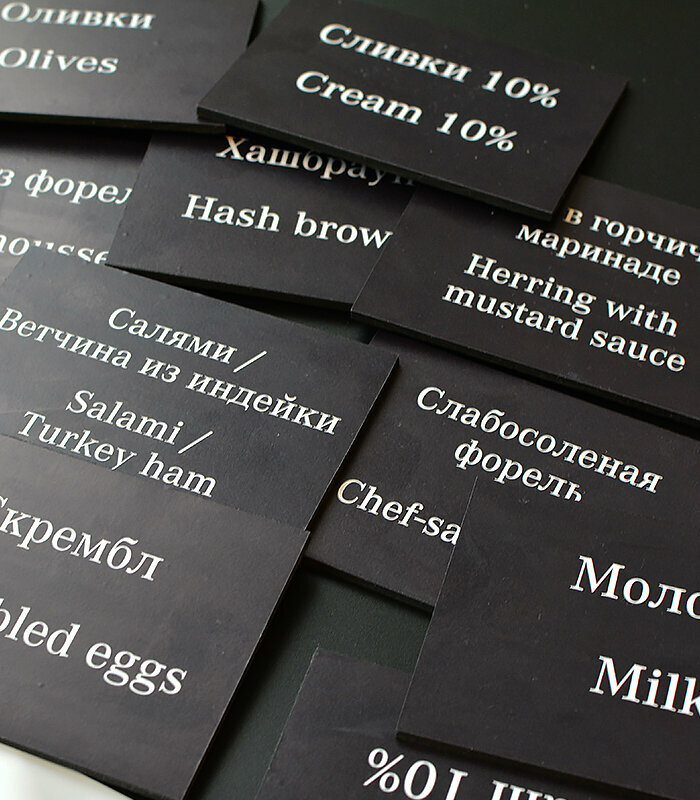 Оливки
Olives
Сливки 10%
Cream 10%
Hash brow
в горчич
маринаде
Herring with
mustard sauce
Салями /
Ветчина из индейки
Salami /
Turkey ham
Слабосоленая
форель
Chef-sa
Скрембл
bled eggs
Моло
Milk
10%